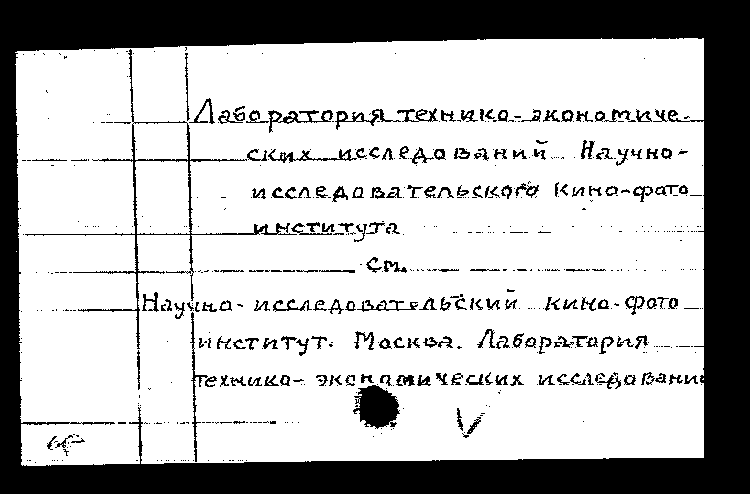 Лаборатория технико-экономиче-
ских исследований Научно-
исследовательского кино-фото
института
см.
Научно-исследовательский кино-фото
институт. Москва. Лаборатория
технико-экономических исследований